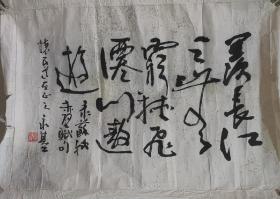 羨長江
之無
窮挟飛
僊以遨
遊
录蘇軾
赤壁賦句